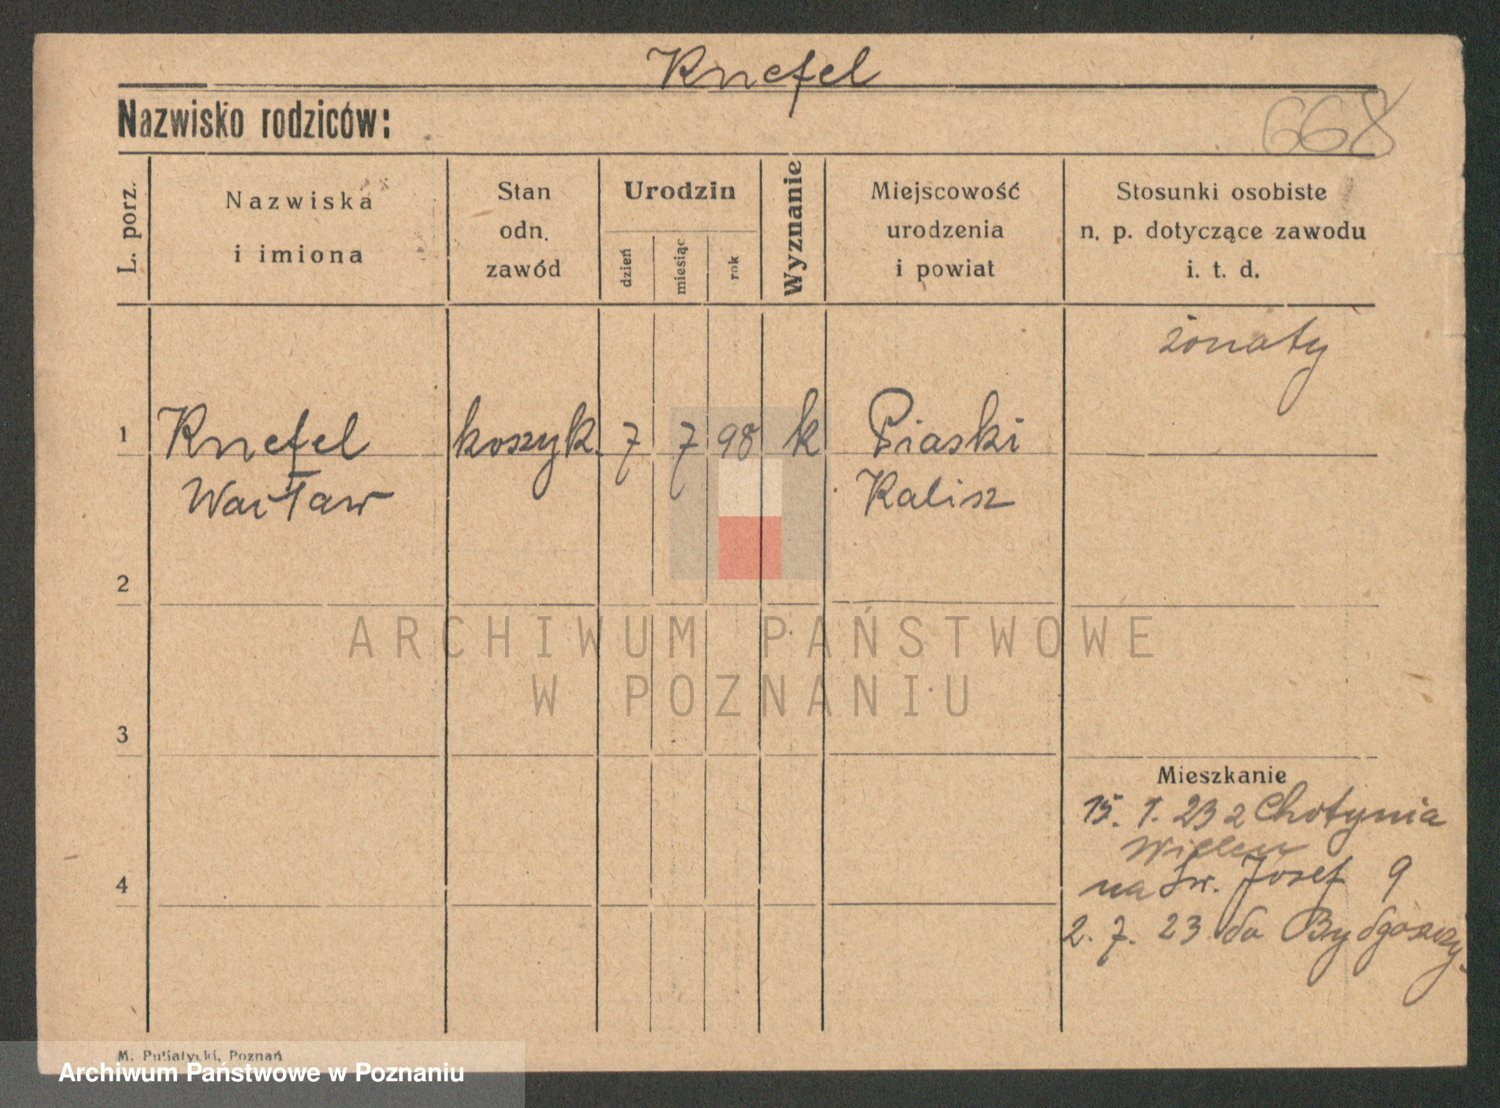 Knefel
Nazwisko rodziców:
668
L. porz.
Nazwiska
i imiona
Stan
odn.
zawód
Urodzin
dzień
miesiąc
rok
Wyznanie
Miejscowość
urodzenia
i powiat
Stosunki osobiste
n. p. dotyczące zawodu
i. t. d.
żonaty
1 Knefel koszyk. 7 7 98 k Piaski
Wacław Kalisz
2
ARCHIWUM PAŃSTWOWE
W POZNANIU
3
Mieszkanie
15. 1. 23 z Chotynia
Wieleń
4
na Św. Józef 9
2. 7. 23 do Bydgoszczy.
M. Putiatycki, Poznań
Archiwum Państwowe w Poznaniu